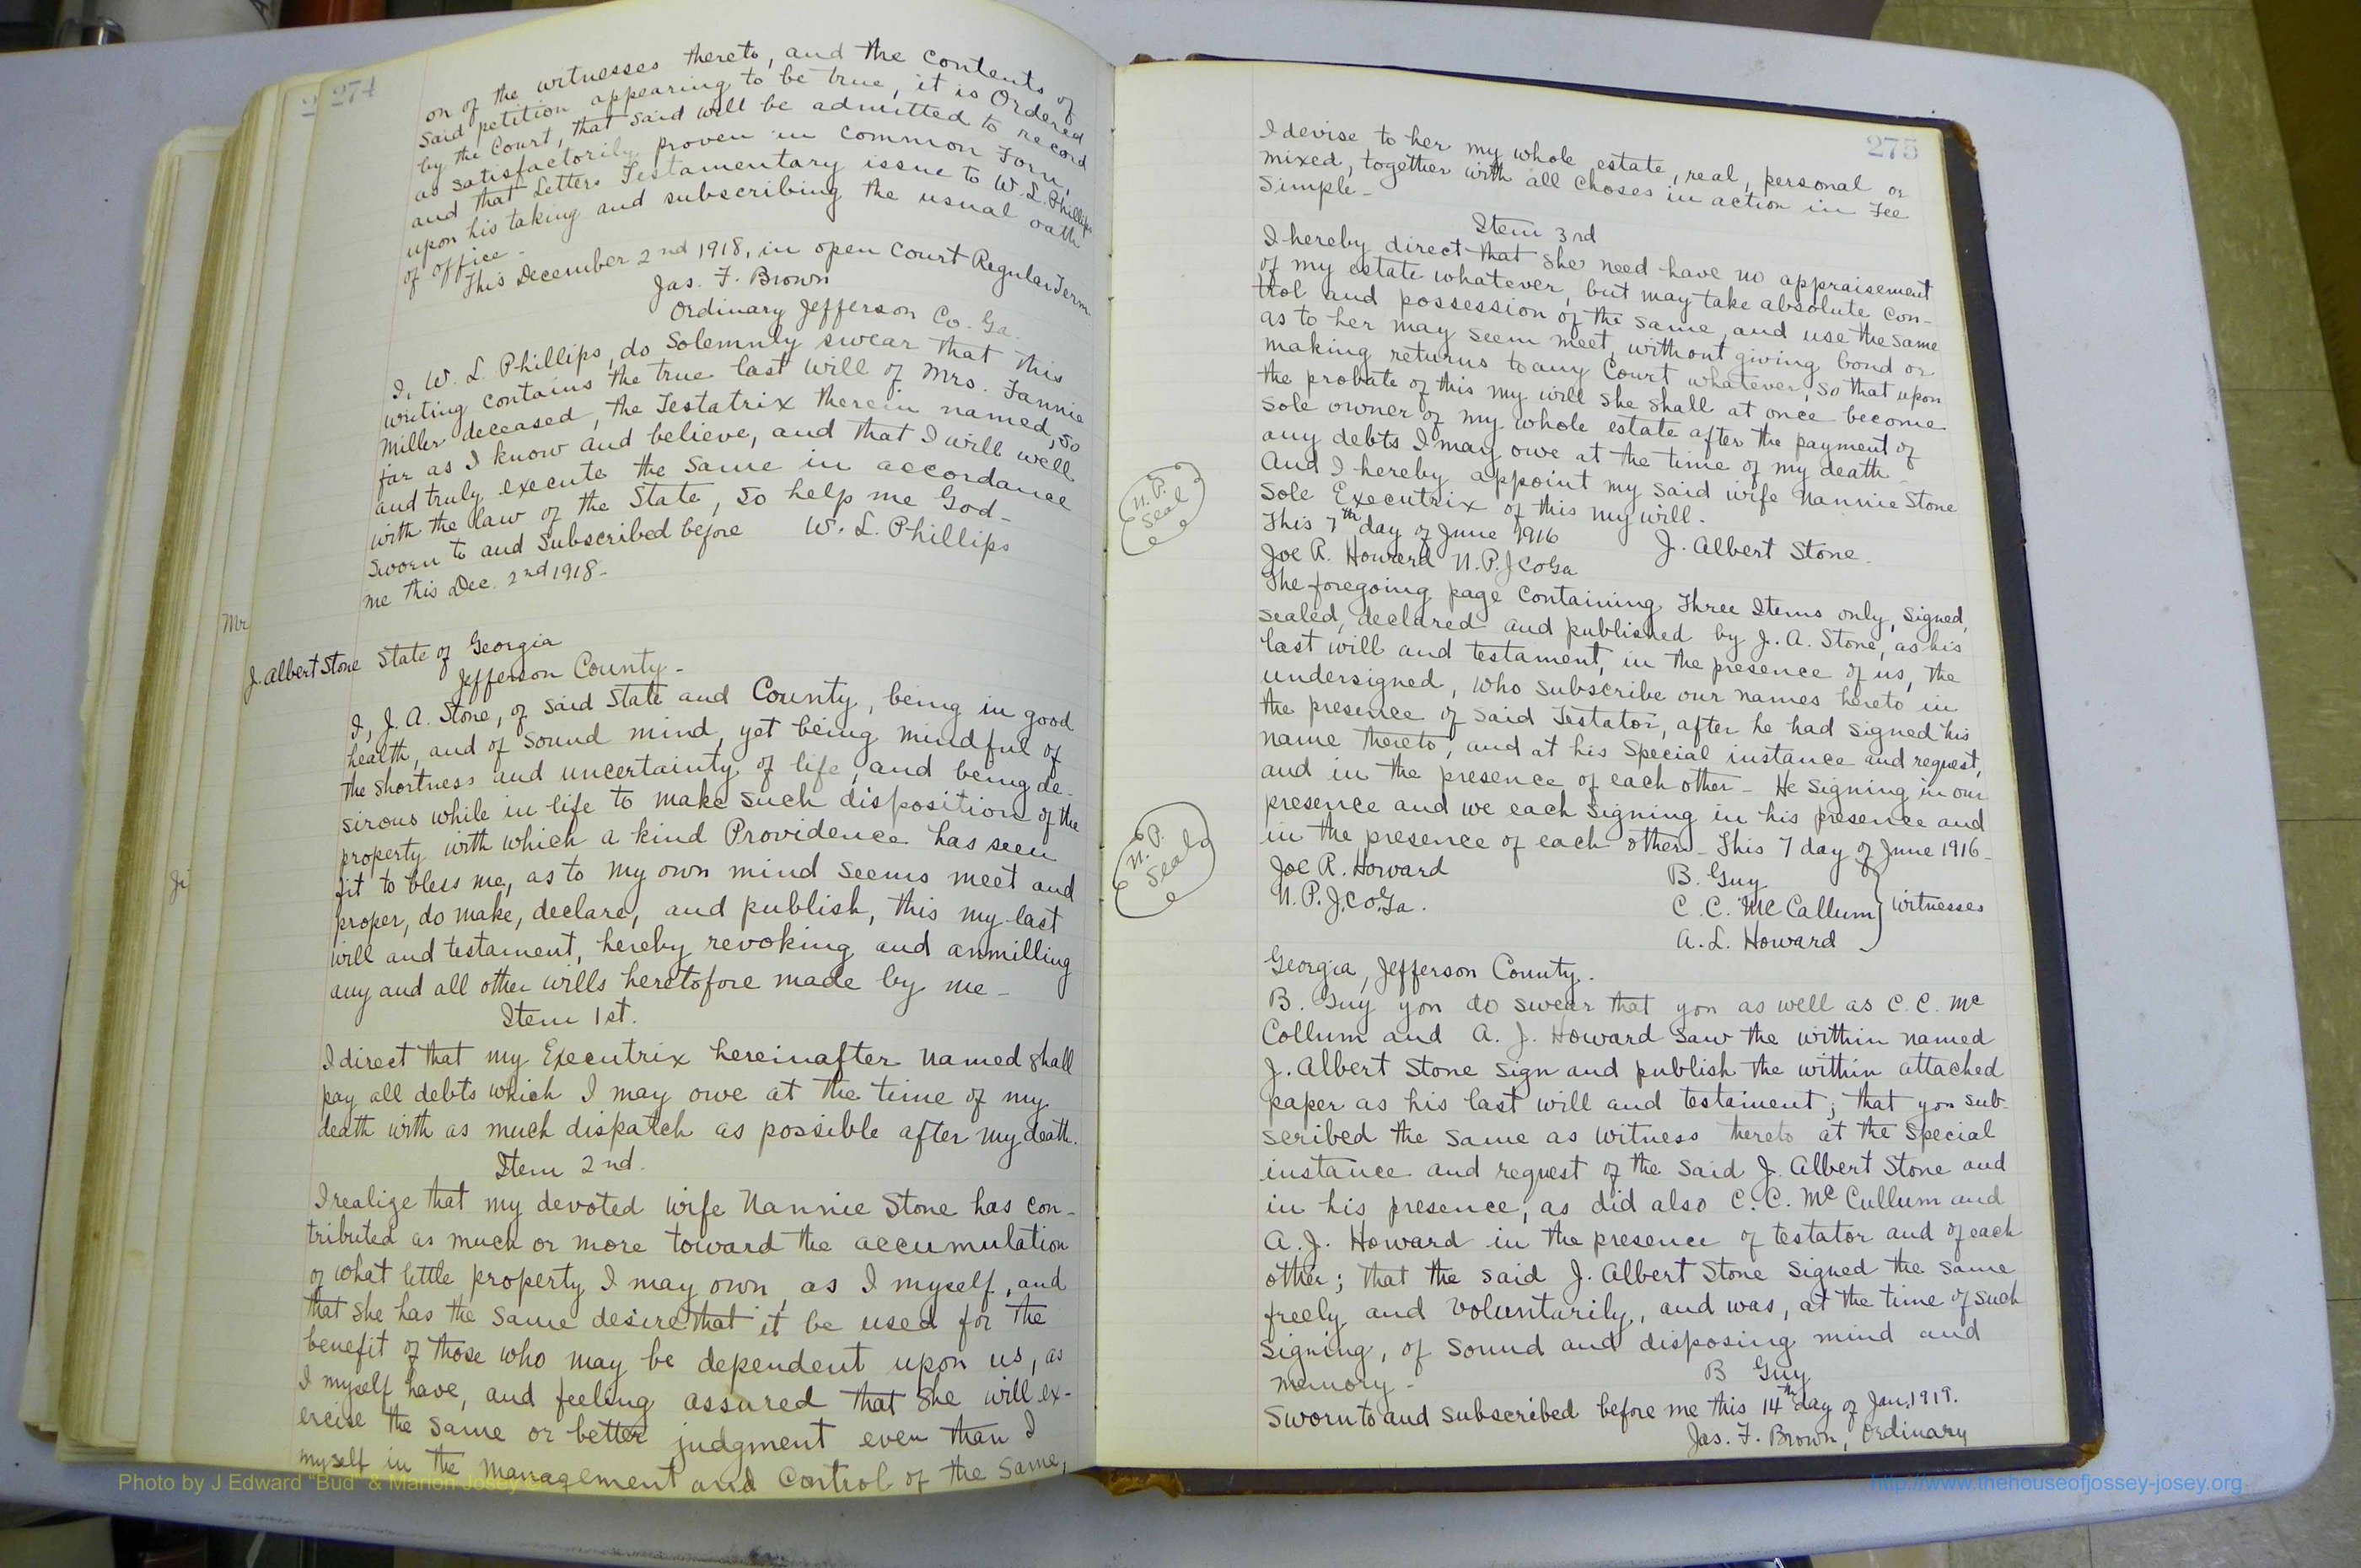 274
on of the witnesses thereto, and the contents of
said petition appearing to be true, it is Ordered
by the Court, that said will be admitted to record
as satisfactorily proven in Common Form,
and that Letters Testamentary issue to W. L. Phillips
upon his taking and subscribing the usual oath
of office -
This December 2nd 1918, in open Court Regular Term
Jas. F. Brown
Ordinary Jefferson Co. Ga.
I, W. L. Phillips, do Solemnly swear that this
writing contains the true last will of Mrs. Fannie
Miller deceased, the Testatrix therein named, so
far as I know and believe, and that I will well
and truly execute the same in accordance
with the law of the State, so help me God -
Sworn to and subscribed before W. L. Phillips
me this Dec. 2nd 1918 -
Mr
Jr
J. Albert Stone State of Georgia
Jefferson County -
I, J. A. Stone, of said State and County, being in good
health, and of sound mind, yet being mindful of
the shortness and uncertainty of life, and being de-
sirous while in life to make such disposition of the
property with which a kind Providence has seen
fit to bless me, as to my own mind seems meet and
proper, do make, declare, and publish, this my last
will and testament, hereby revoking and annulling
any and all other wills heretofore made by me -
Item 1st.
I direct that my Executrix hereinafter named shall
pay all debts which I may owe at the time of my
death with as much dispatch as possible after my death.
Item 2nd.
I realize that my devoted wife Nannie Stone has con-
tributed as much or more toward the accumulation
of what little property I may own, as I myself, and
that she has the same desire that it be used for the
benefit of those who may be dependent upon us, as
I myself have, and feeling assured that she will ex-
ercise the same or better judgment even than I
myself in the management and control of the same,
275
I devise to her my whole estate, real, personal or
mixed, together with all choses in action in Fee
Simple -
Item 3rd
I hereby direct that she need have no appraisement
of my estate whatever, but may take absolute con-
trol and possession of the same, and use the same
as to her may seem meet, without giving bond or
making returns to any Court whatever, so that upon
the probate of this my will she shall at once become
sole owner of my whole estate after the payment of
any debts I may owe at the time of my death -
And I hereby appoint my said wife Nannie Stone
sole Executrix of this my will.
This 7th day of June 1916 J. Albert Stone.
N. P. Seal
Joe R. Howard N. P. J Co Ga
The foregoing page containing Three Items only, signed,
sealed, declared and published by J. A. Stone, as his
last will and testament, in the presence of us, the
undersigned, who subscribe our names hereto in
the presence of said Testator, after he had signed his
name thereto, and at his special instance and request,
and in the presence of each other - He signing in our
presence and we each signing in his presence and
in the presence of each other - This 7 day of June 1916 -
N. P. Seal
Joe R. Howard B. Guy
N. P. J. Co. Ga. C. C. McCallum } witnesses
A. L. Howard
Georgia, Jefferson County.
B. Guy you do swear that you as well as C. C. Mc
Collum and A. J. Howard saw the within named
J. Albert Stone sign and publish the within attached
paper as his last will and testament; that you sub-
scribed the same as witness thereto at the special
instance and request of the said J. Albert Stone and
in his presence, as did also C. C. McCullum and
A. J. Howard in the presence of testator and of each
other; that the said J. Albert Stone signed the same
freely and voluntarily, and was, at the time of such
signing, of sound and disposing mind and
memory - B Guy
Sworn to and subscribed before me this 14th day of Jan, 1919.
Jas. F. Brown, Ordinary
Photo by J Edward "Bud" & Marion Josey ©
http://www.thehouseofjossey-josey.org